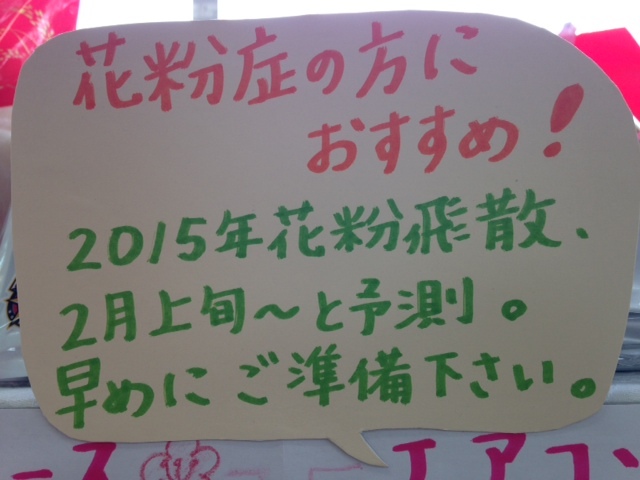 花粉症の方に
おすすめ!
2015年花粉飛散、
2月上旬〜と予測。
早めにご準備下さい。
ース エアコン